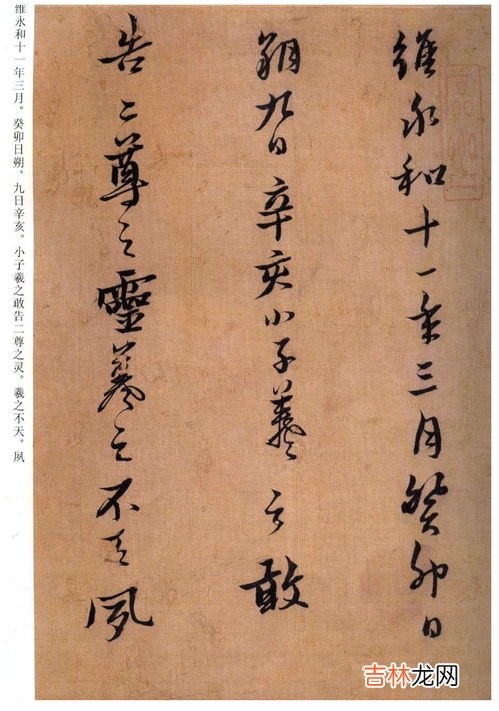 維永和十一年三月癸卯日
朔九日辛亥小子羲之敢
告二尊之靈羲之不天夙
维永和十一年三月。癸卯日朔。九日辛亥。小子羲之敢告二尊之灵。羲之不天。夙
吉林龙网